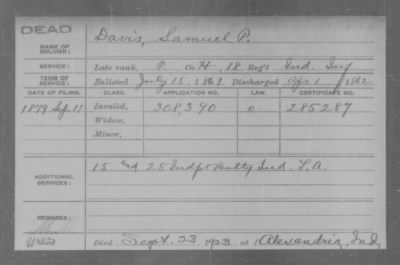 DEAD
NAME OF SOLDIER: Davis, Samuel P.
SERVICE: Late rank, P. Co H, 18 Reg't Ind. Inf
TERM OF SERVICE: Enlisted July 15, 1861 Discharged Apr 1 1862
DATE OF FILING. CLASS. APPLICATION NO. LAW. CERTIFICATE NO.
1879 Sep. 11 Invalid, 308,390 o 285287
Widow,
Minor,
ADDITIONAL SERVICES: 15 and 25 Indpt Batty Ind. L.A.
REMARKS:
Died Sept. 23, 1923 at Alexandria, Ind,